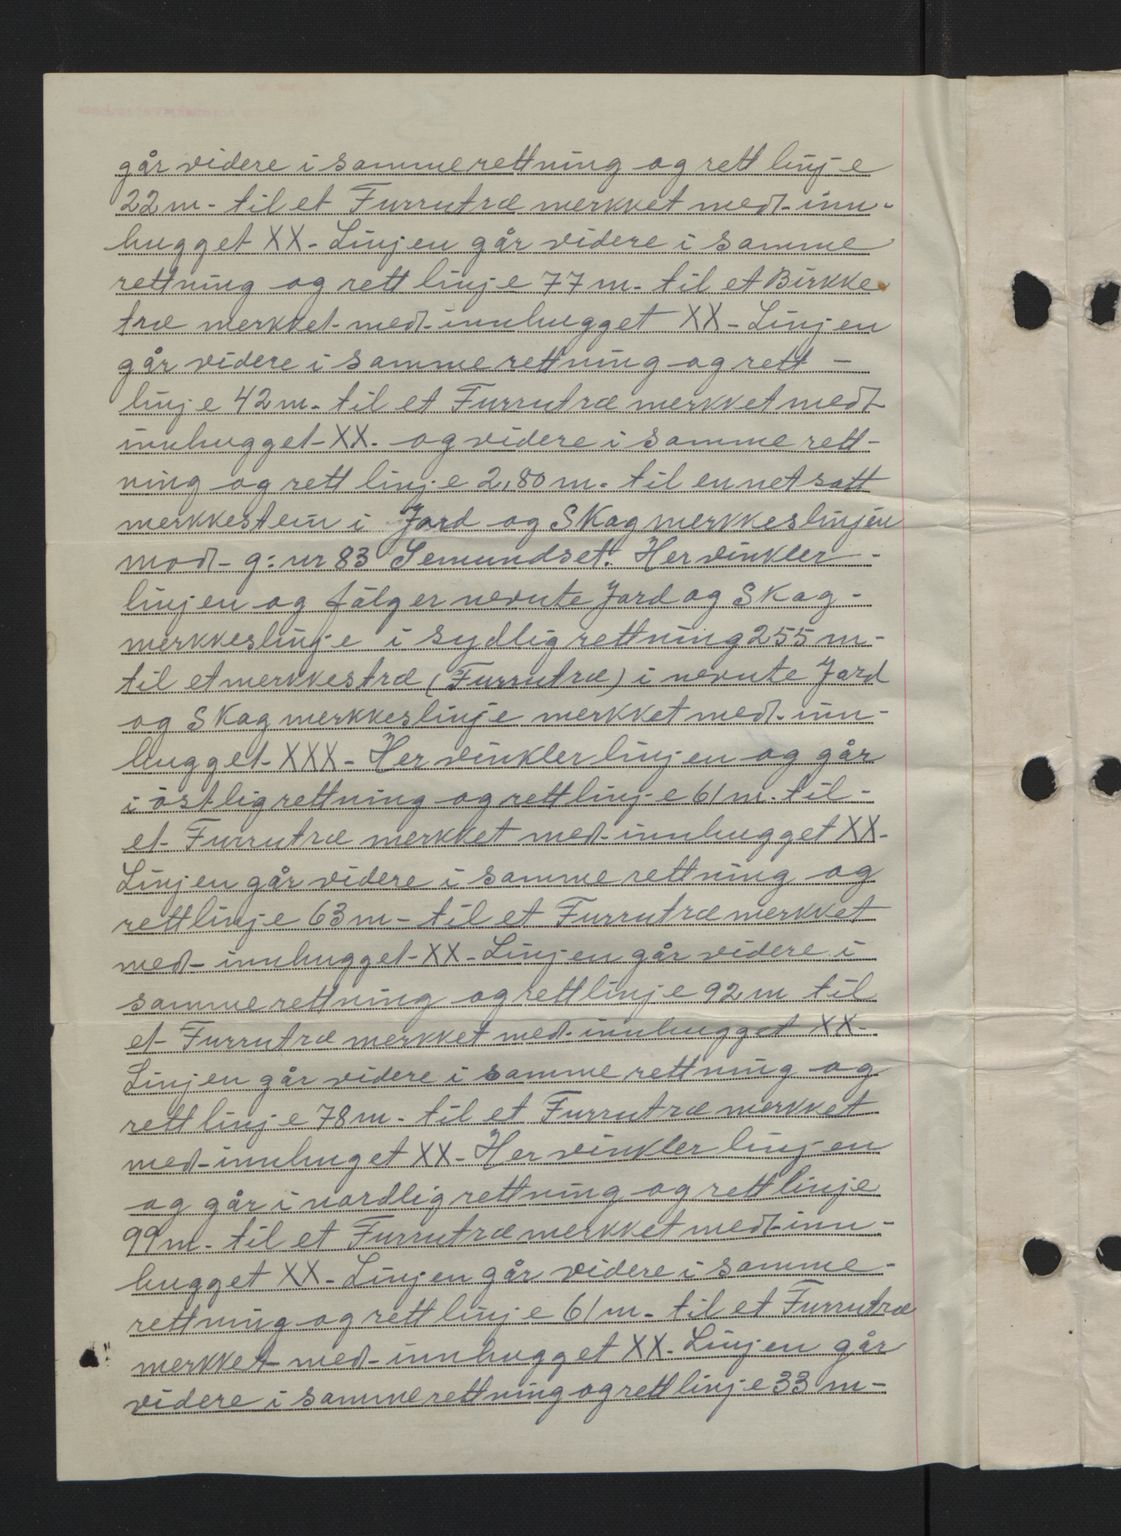 går videre i samme rettning og rett linje
22 m. til et Furrutræ merkket med inn-
hugget XX - Linjen går videre i samme
rettning og rett linje 77 m. til et Birkke
træ merkket med innhugget XX - Linjen
går videre i samme rettning og rett -
linje 42 m. til et Furrutræ merkket med
innhugget XX. og videre i samme rett-
ning og rett linje 2,80 m. til en netsatt
merkkestein i Jord og Skog merkkeslinjen
mod - g: nr 83 Semundset. Her vinkler -
linjen og fölger nevnte Jord og Skog -
merkkeslinje i sydlig rettning 255 m -
til et merkkestræ (Furrutræ) i nevnte Jord
og Skog merkkeslinje merkket med inn-
hugget - XXX - Her vinkler linjen og går
i östlig rettning og rett linje 61 m. til -
et Furrutræ merkket med innhugget XX -
Linjen går videre i samme rettning og
rett linje 63 m - til et Furrutræ merkket
med - innhugget - XX - Linjen går videre i
samme rettning og rett linje 92 m til
et Furrutræ merkket med innhugget XX -
Linjen går videre i samme rettning og
rett linje 78 m. til et Furrutræ merkket
med - innhuget XX - Her vinkler linjen
og går i nordlig rettning og rett linje
99 m. til et Furrutræ merkket med inn -
hugget XX - Linjen går videre i samme -
rettning og rett linje 61 m - til et Furrutræ
merkket - med - innhugget XX - Linjen går
videre i samme rettning og rett linje 33 m -